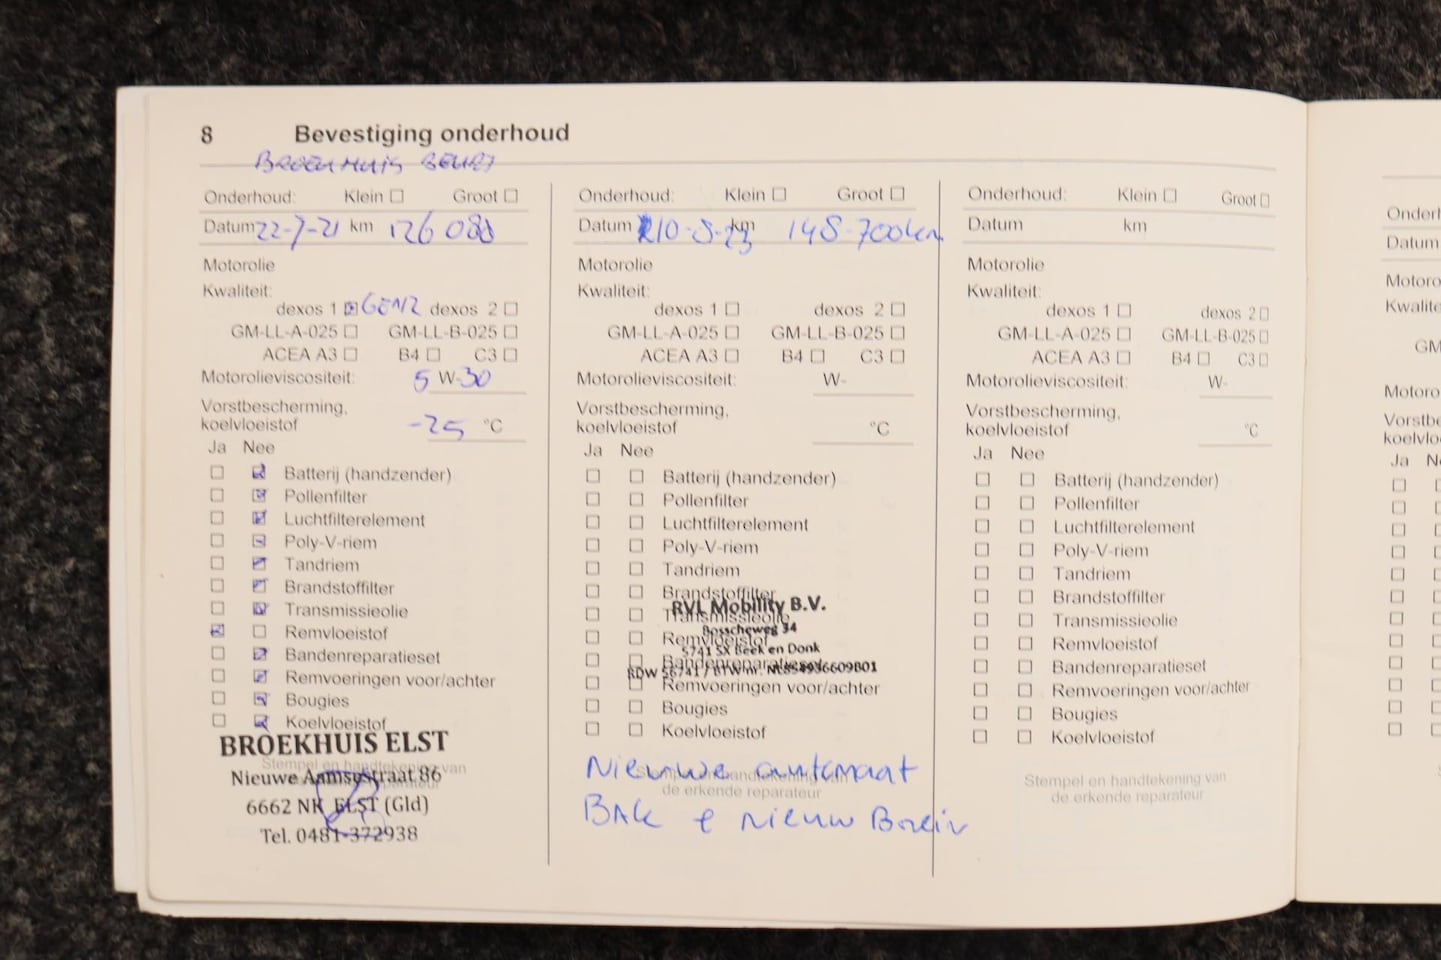 8 Bevestiging onderhoud
BROEKHUIS BEURT
Onderhoud: Klein Groot
Datum 22-7-21 km 126 088
Motorolie
Kwaliteit:
dexos 1 GEN2 dexos 2
GM-LL-A-025 GM-LL-B-025
ACEA A3 B4 C3
Motorolieviscositeit: 5 W-30
Vorstbescherming,
koelvloeistof -25 °C
Ja Nee
Batterij (handzender)
Pollenfilter
Luchtfilterelement
Poly-V-riem
Tandriem
Brandstoffilter
Transmissieolie
Remvloeistof
Bandenreparatieset
Remvoeringen voor/achter
Bougies
Koelvloeistof
BROEKHUIS ELST
Stempel en handtekening van
Nieuwe Aamsestraat 86
6662 NK ELST (Gld)
Tel. 0481-372938
Onderhoud: Klein Groot
Datum 10-8-23 km 148-700km
Motorolie
Kwaliteit:
dexos 1 dexos 2
GM-LL-A-025 GM-LL-B-025
ACEA A3 B4 C3
Motorolieviscositeit: W-
Vorstbescherming,
koelvloeistof °C
Ja Nee
Batterij (handzender)
Pollenfilter
Luchtfilterelement
Poly-V-riem
Tandriem
Brandstoffilter
RVL Mobility B.V.
Transmissieolie
Bosscheweg 34
Remvloeistof
5741 SX Beek en Donk
Bandenreparatieset
RDW 56741 / BTW nr. NL854936609B01
Remvoeringen voor/achter
Bougies
Koelvloeistof
Nieuwe automaat
de erkende reparateur
BAK e nieuw
Onderhoud: Klein Groot
Datum km
Motorolie
Kwaliteit:
dexos 1 dexos 2
GM-LL-A-025 GM-LL-B-025
ACEA A3 B4 C3
Motorolieviscositeit: W-
Vorstbescherming,
koelvloeistof °C
Ja Nee
Batterij (handzender)
Pollenfilter
Luchtfilterelement
Poly-V-riem
Tandriem
Brandstoffilter
Transmissieolie
Remvloeistof
Bandenreparatieset
Remvoeringen voor/achter
Bougies
Koelvloeistof
Stempel en handtekening van
de erkende reparateur
Onderh
Datum
Motoro
Kwalite
GM
Motoro
Vorstb
koelvlo
Ja N